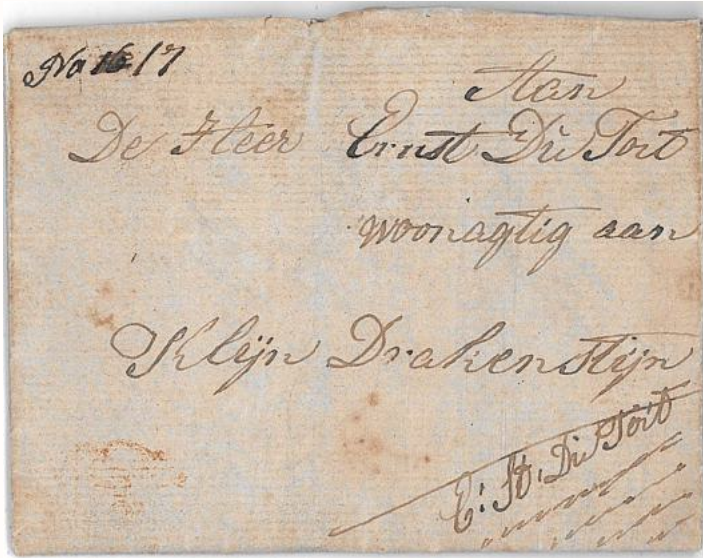 No 16 17
Aan
De Heer Ernst Du Toit
woonagtig aan
Klijn Drakenstijn
E: St. Du Toit